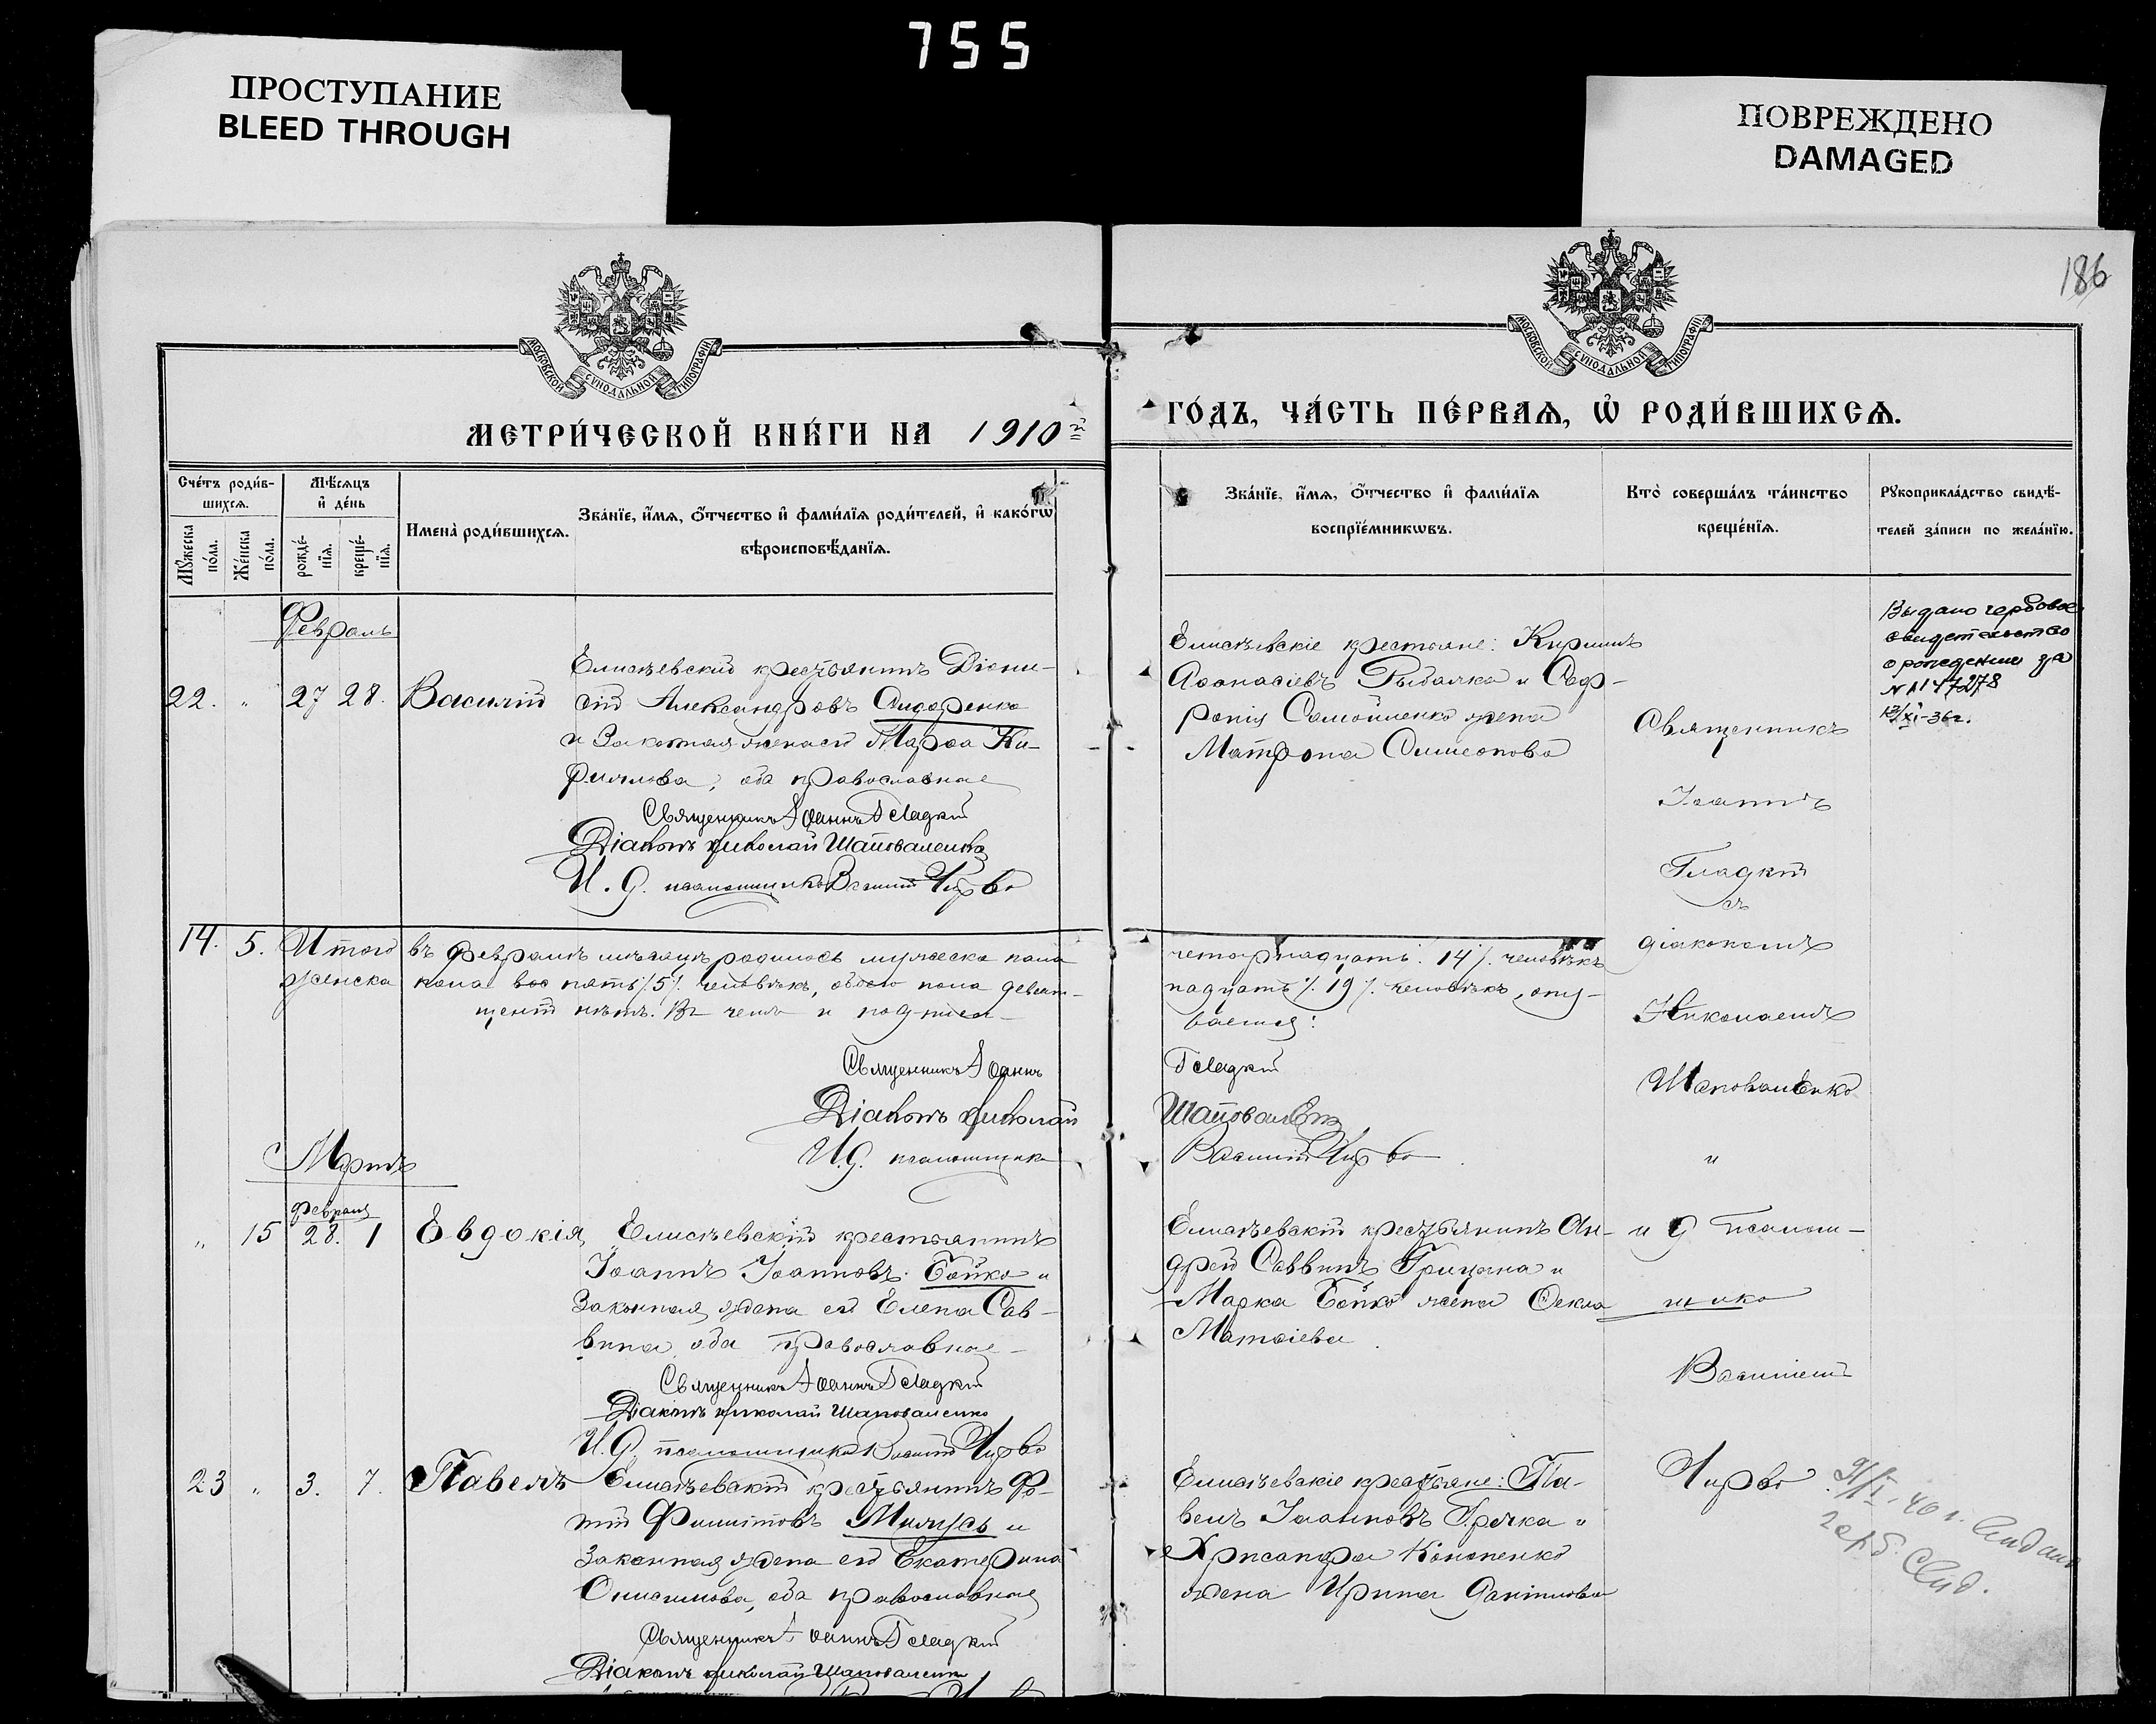 755
ПРОСТУПАНИЕ
BLEED THROUGH
ПОВРЕЖДЕНО
DAMAGED
186
МОСКОВСКОЙ СУНОДАЛЬНОЙ ТИПОГРАФІИ
МОСКОВСКОЙ СУНОДАЛЬНОЙ ТИПОГРАФІИ
МЕТРИ́ЧЕСКОЙ КНИ́ГИ НА 1910й
ГО́ДЪ, ЧА́СТЬ ПЕ́РВАѦ, Ѡ҆ РОДИ́ВШИХСѦ.
Сче́тъ роди́в-
шихсѧ.
Мꙋ́жеска по́ла.
Же́нска по́ла.
Мѣ́сѧцъ
и҆ де́нь
рожде́-
нїѧ.
креще́-
нїѧ.
Имена̀ роди́вшихсѧ.
Зва́нїе, и҆́мѧ, ѻ҆́тчество и҆ фами́лїѧ роди́телей, и҆ како́гѡ
вѣроисповѣ́данїѧ.
Зва́нїе, и҆́мѧ, ѻ҆́тчество и҆ фами́лїѧ
воспрїе́мникѡвъ.
Кто̀ соверша́лъ та́инство
креще́нїѧ.
Рꙋкоприкла́дство свидѣ́-
телей за́писи по жела́нїю.
Февраль
22. „ 27 28. Василій
Елисѣевскій крестьянинъ Діони-
сій Александровъ Сидоренко
и Законная жена его Марѳа Ки-
рилова, оба православные
Священникъ Іоаннъ Гладкій
Діаконъ Николай Шаповаленко
И. д. псаломщика Василій Чирва
Елисѣевскіе крестьяне: Кириллъ
Аѳанасіевъ Рыбалка и Соф-
ронія Самойленко жена
Матрона Симеонова
Священникъ
Іоаннъ
Гладкій
съ
діакономъ
Николаемъ
Шаповаленко
и
и д псалом-
щика
Василіемъ
Чирва
Выдано гербовое
свидетельство
о рождении за
13/XI-36г.
14. 5. Итого въ Февралѣ мѣсяцѣ родилось мужеска пола
женска пола пять /5/. человѣкъ, обоего пола девят-
четырнадцать. 14/. человѣкъ
надцать /. 19 /. человѣкъ,
щеній нѣтъ. Въ чемъ и подписы-
ваемся:
Священникъ Іоаннъ
Гладкій
Діаконъ Николай
Шаповаленко
И.д. псаломщика
Василій Чирва
Мартъ
Февраля
„ 15 28. 1 Евдокія
Елисѣевскій крестьянинъ
Іоаннъ Іоанновъ Бойко и
Законная жена его Елена Сав-
вина, оба православные
Священникъ Іоаннъ Гладкій
Діаконъ Николай Шаповаленко
И.д. псаломщика Василій Чирва
Елисѣевскій крестьянинъ Ан-
дрей Саввинъ Грицына и
Марка Бойко жена Ѳекла
Матѳіева.
23 „ 3. 7. Павелъ
Елисѣевскій крестьянинъ Фо-
тій Филиповъ Милусь и
Законная жена его Екатерина
Онисимова, оба православные
Священникъ Іоаннъ Гладкій
Діаконъ Николай Шаповаленко
Елисѣевскіе крестьяне: Па-
велъ Іоанновъ Прячка и
Хрисанфа Кононенко
жена Ирина Даніилова
9/I. 40 г.
герб. Свид.